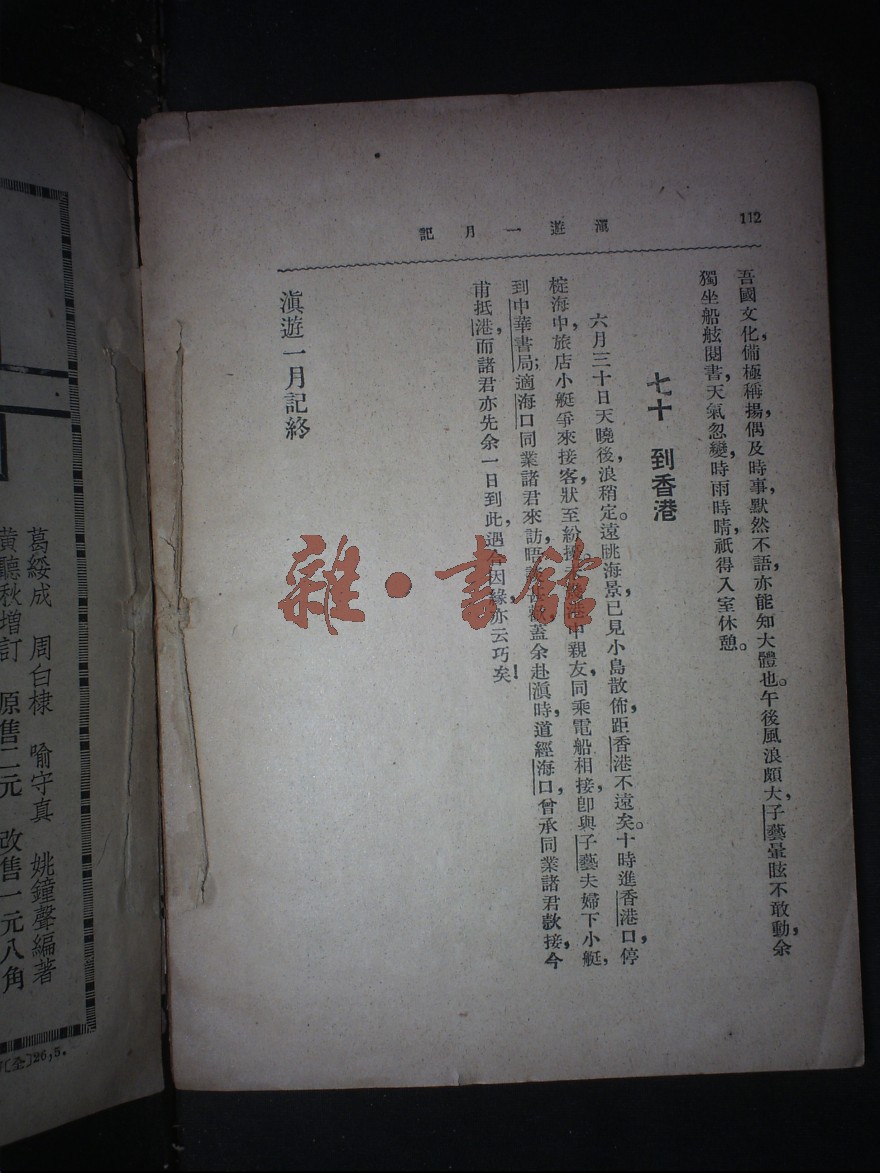 112
滇遊一月記
吾國文化備極稱揚偶及時事默然不語亦能知大體也。午後風浪頗大，子藝暈眩不敢動，余
獨坐船舷閱書，天氣忽變，時雨時晴，祇得入室休憩。
七十 到香港
六月三十日天曉後，浪稍定。遠眺海景，已見小島散佈，距香港不遠矣。十時進香港口，停
椗海中，旅店小艇爭來接客，狀至紛中親友同乘電船相接，卽與子藝夫婦下小艇，
到中華書局；適海口同業諸君來訪，晤甚歡。蓋余赴滇時，道經海口，曾承同業諸君款接，今
甫抵港，而諸君亦先余一日到此，遇因緣，亦云巧矣！
滇遊一月記終
雜·書館
葛綏成 周白棣 喻守真 姚鐘聲編著
黃聽秋增訂 原售二元 改售一元八角
(全)26,5.